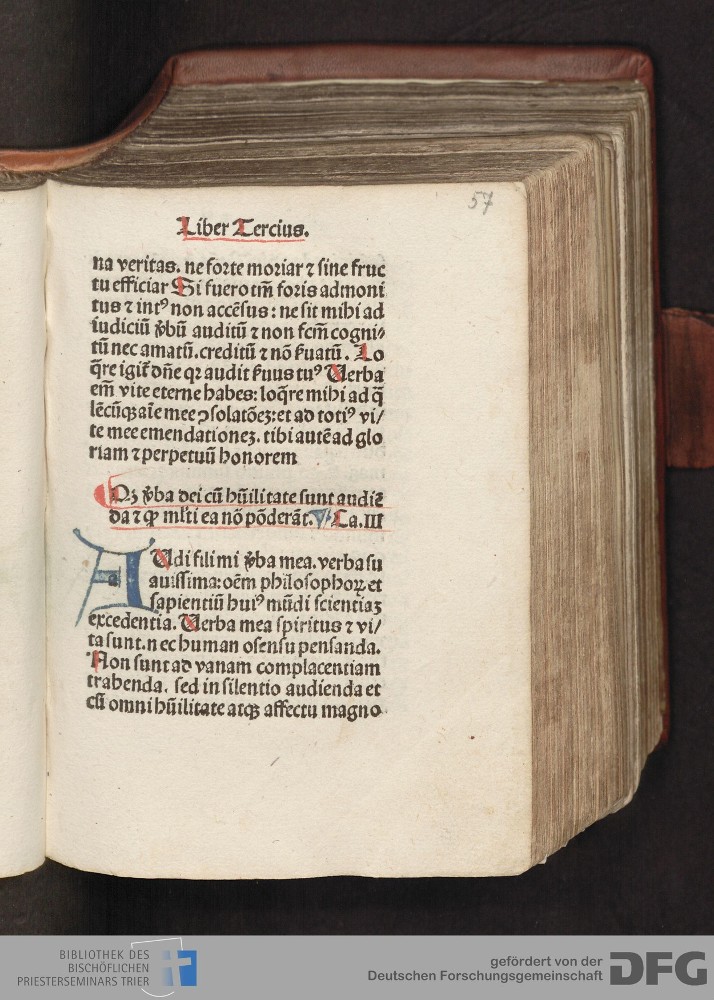 57
Liber Tercius.
na veritas. ne forte moriar ⁊ sine fruc
tu efficiar Si fuero tm̄ foris admoni
tus ⁊ intꝰ non accēsus: ne sit mihi ad
iudiciū v̓bū auditū ⁊ non fcm̄ cogni⸗
tū nec amatū. creditū ⁊ nō ẜuatū. Lo
q̄re igit᷑ dn̄e qꝛ audit ẜuus tuꝰ Verba
em̄ vite eterne habes: loq̄re mihi ad q̄
lēcūqꝫ aīe mee ꝯsolatōeꝫ: et ad totiꝰ vi⸗
te mee emendationeꝫ. tibi autē ad glo
riam ⁊ perpetuū honorem
Qꝫ v̓ba dei cū hūilitate sunt audiē
da ⁊ ꝙ ml̓ti ea nō pōderāt. Ca. III
AUdi fili mi v̓ba mea. verba su
auissima: oēm philosophoꝝ et
sapientiū huiꝰ mūdi scientiaꝫ
excedentia. Verba mea spiritus ⁊ vi⸗
ta sunt. nec human osensu pensanda.
Non sunt ad vanam complacentiam
trahenda. sed in silentio audienda et
cū omni hūilitate atqꝫ affectu magno
BIBLIOTHEK DES
BISCHÖFLICHEN
PRIESTERSEMINARS TRIER
gefördert von der
Deutschen Forschungsgemeinschaft
DFG